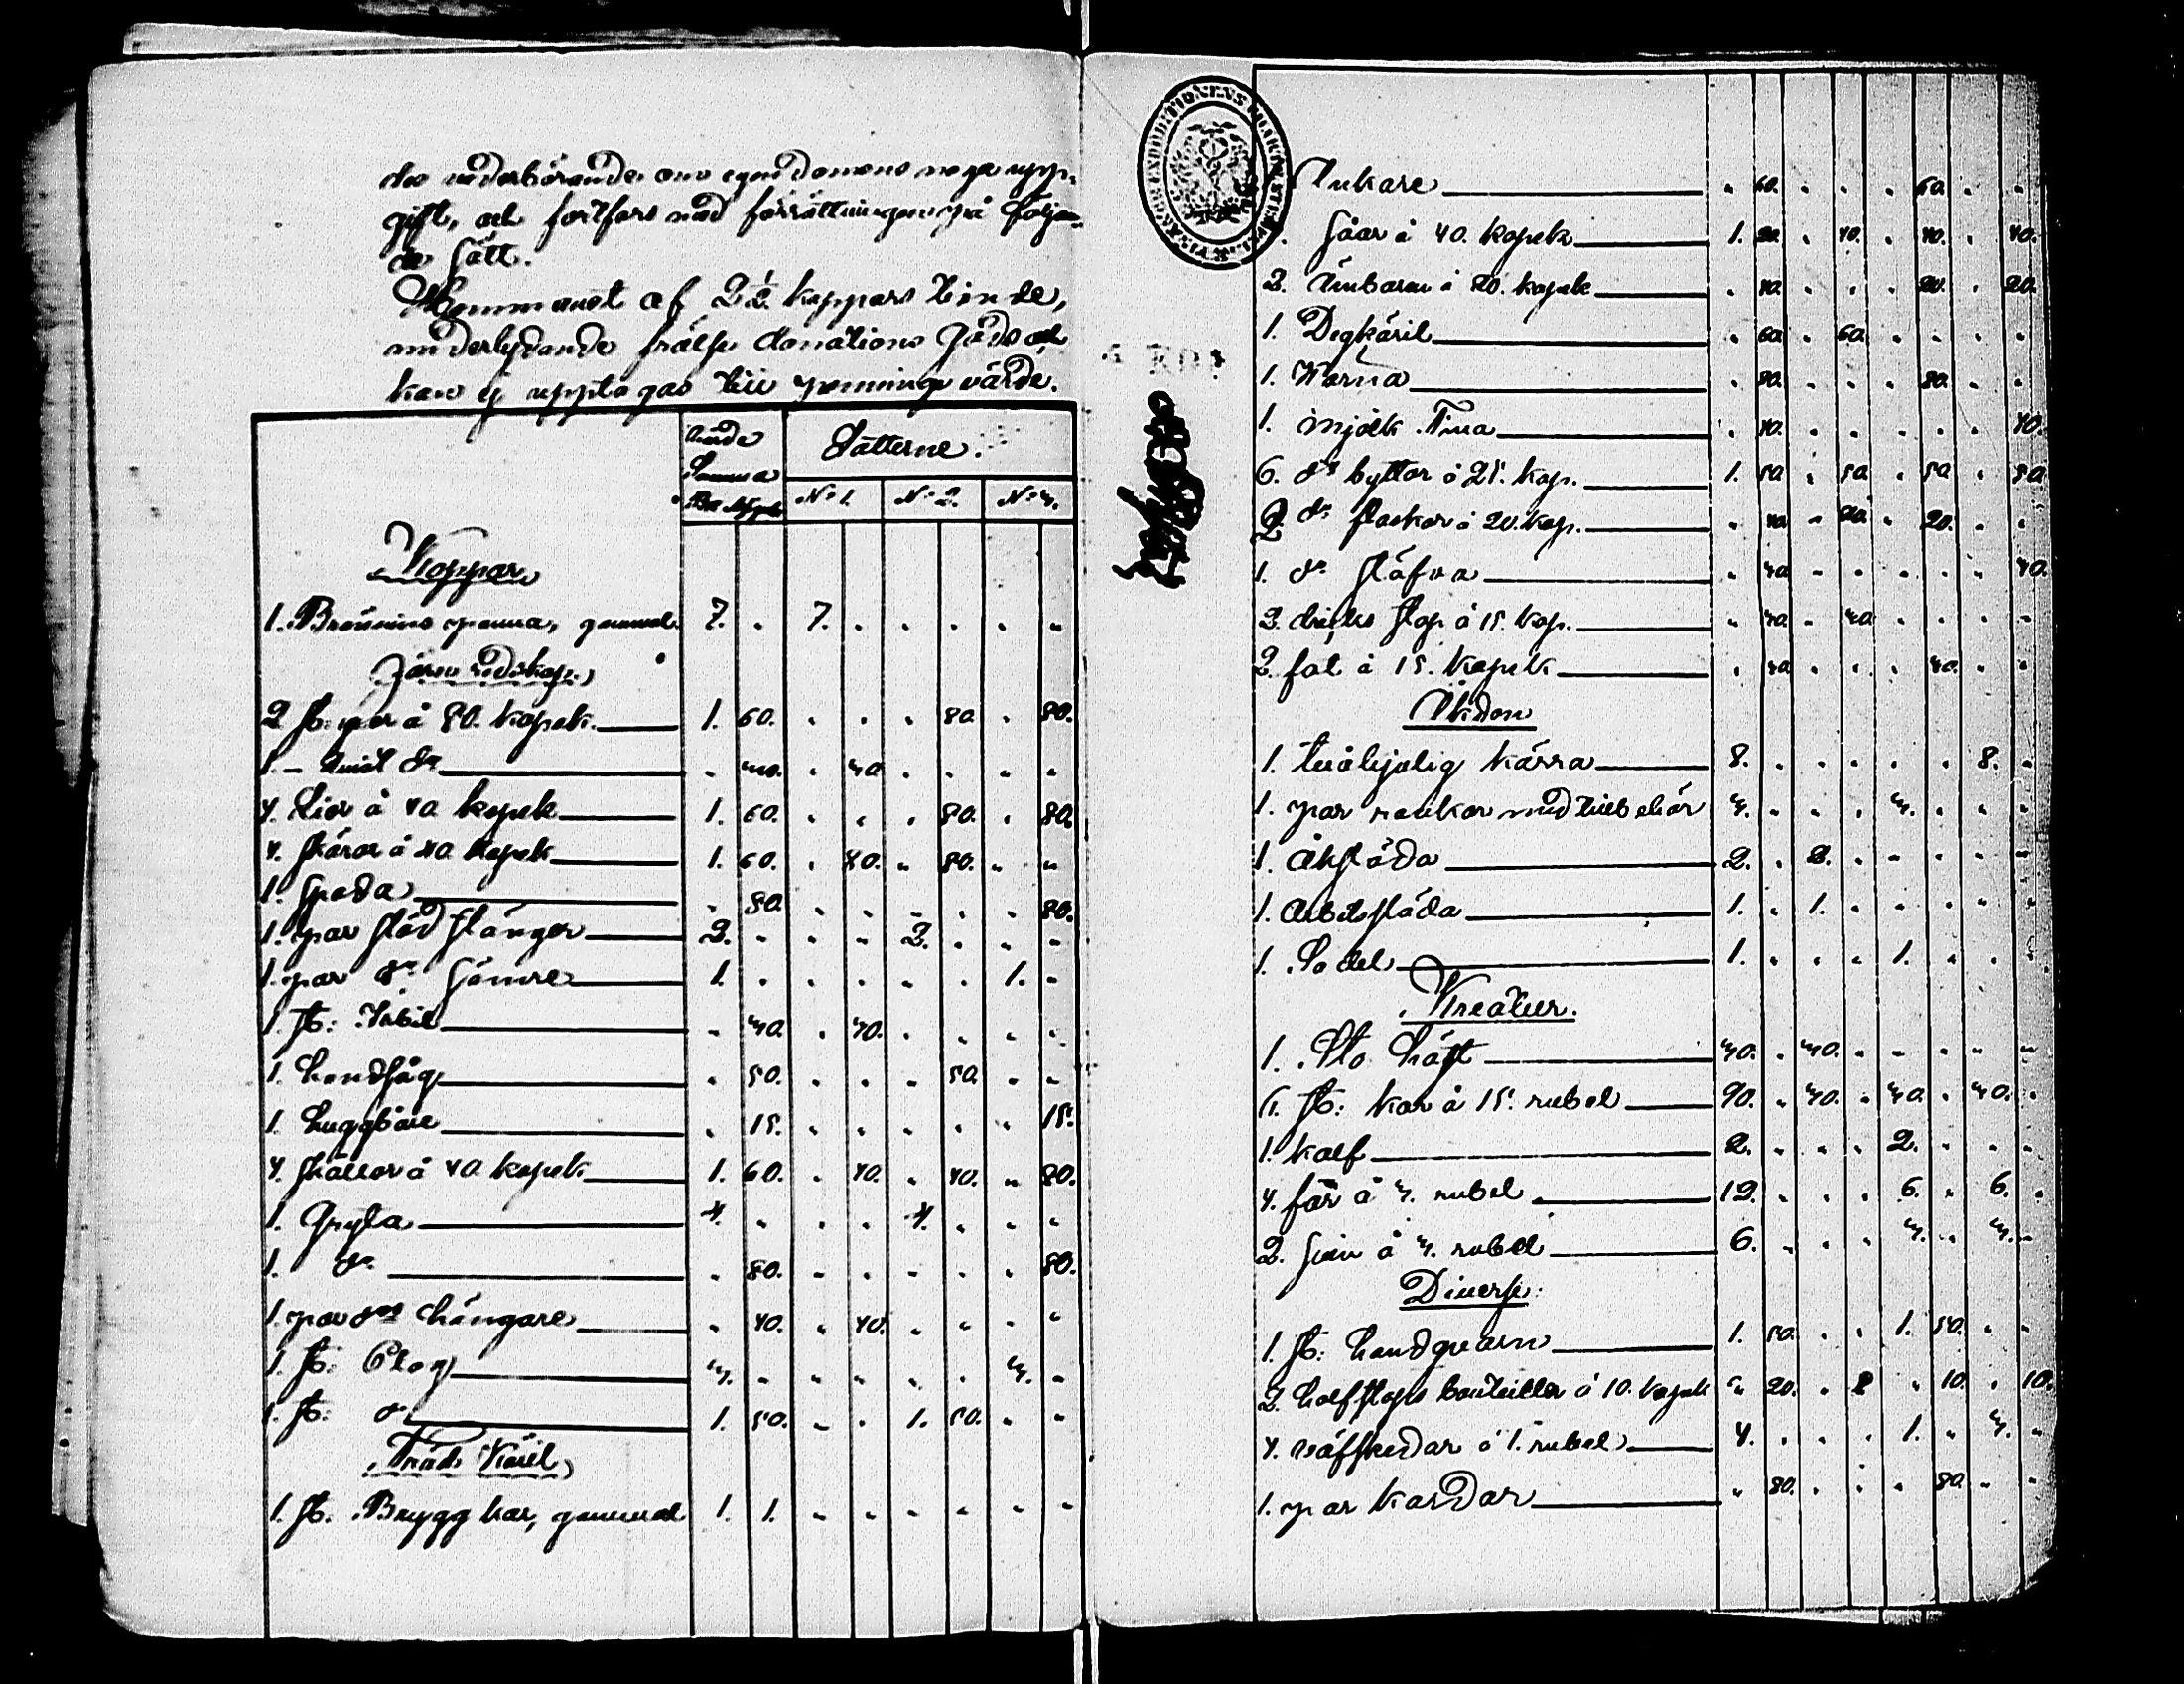 des vederbörande om egendomens noga upp-
gift, och fortfors med förrättningen på följan-
de sätt.
Hemmanet af 2½ kappars tionde,
underlydande frälse donations Gods och
kan ej upptagas till pennings värde.
Summa Lotterne.
N:o 1. N:o 2. N:o 3.
Koppar
1. Bränvins panna, gammal. 7. " 7. " " " " "
Järn redskap.
2 st: yxor å 80. kopek. 1. 60. " " " 80. " 80.
1. – d:o " 30. " 30. " " " "
4. Liar å 40 kopek 1. 60. " " " 80. " 80.
4. Skäror å 40 kopek 1. 60. " 80. " 80. " "
1. Spada " 80. " " " " " 80.
1. par stöd stänger 2. " " " 2. " " "
1. par d:o 1. " " " " " 1. "
1. st: " 30. " 30. " " " "
1. handsåg " 50. " " " 50. " "
1. " 15. " " " " " 15.
4. skällor å 40 kopek 1. 60. " 40. " 40. " 80.
1. Gryta 4. " " " 4. " " "
1. d:o " 80. " " " " " 80.
1. par hängare " 40. " 40. " " " "
1. st: Plog 3. " " " " " 3. "
1. st: d:o 1. 50. " " 1. 50. " "
Träd Käril
1. st. Brygg kar, gammal 1. 1. " " " " "
Ankare " 60. " " " 60. " "
Såar å 40. kopek 1. 20. " 40. " 40. " 40.
2. Ämbaren å 20. kopek " 40. " " " 20. " 20.
1. Degkäril " 60. " 60. " " " "
1. Kärna " 80. " " " 80. " "
1. mjölk Tina " 40. " " " " " 40.
6. d:o byttor å 25. kop. 1. 50. " 50. " 50. " 50.
2. d:o flaskor å 20. kop. " 40. " 20. " 20. " "
1. d:o stäfva " 30. " " " " " 30.
2. dricks stop å 15. kop. " 30. " 30. " " " "
2. fat å 15. kopek " 30. " " " 30. " "
Åkdon
1. tvåhjulig kärra 8. " " " " " 8. "
1. par rankor med tillbehör 3. " " " 3. " " "
1. Åksläda 2. " 2. " " " " "
1. Arbetssläda 1. " 1. " " " " "
1. Sadel 1. " " " 1. " " "
Kreatur.
1. Sto häst 30. " 30. " " " " "
6. st: kor å 15. rubel 90. " 30. " 30. " 30. "
1. kalf 2. " " " 2. " " "
4. får å 3. rubel 12. " " " 6. " 6. "
2. svin å 3. rubel 6. " " " 3. " 3. "
Diverse.
1. st: handqvarn 1. 50. " " 1. 50. " "
2. halfstops bouteiller å 10. kopek " 20. " " " 10. " 10.
4. väfskedar å 1. rubel 4. " " " 1. " 3. "
1. par kardor " 80. " " " 80. " "